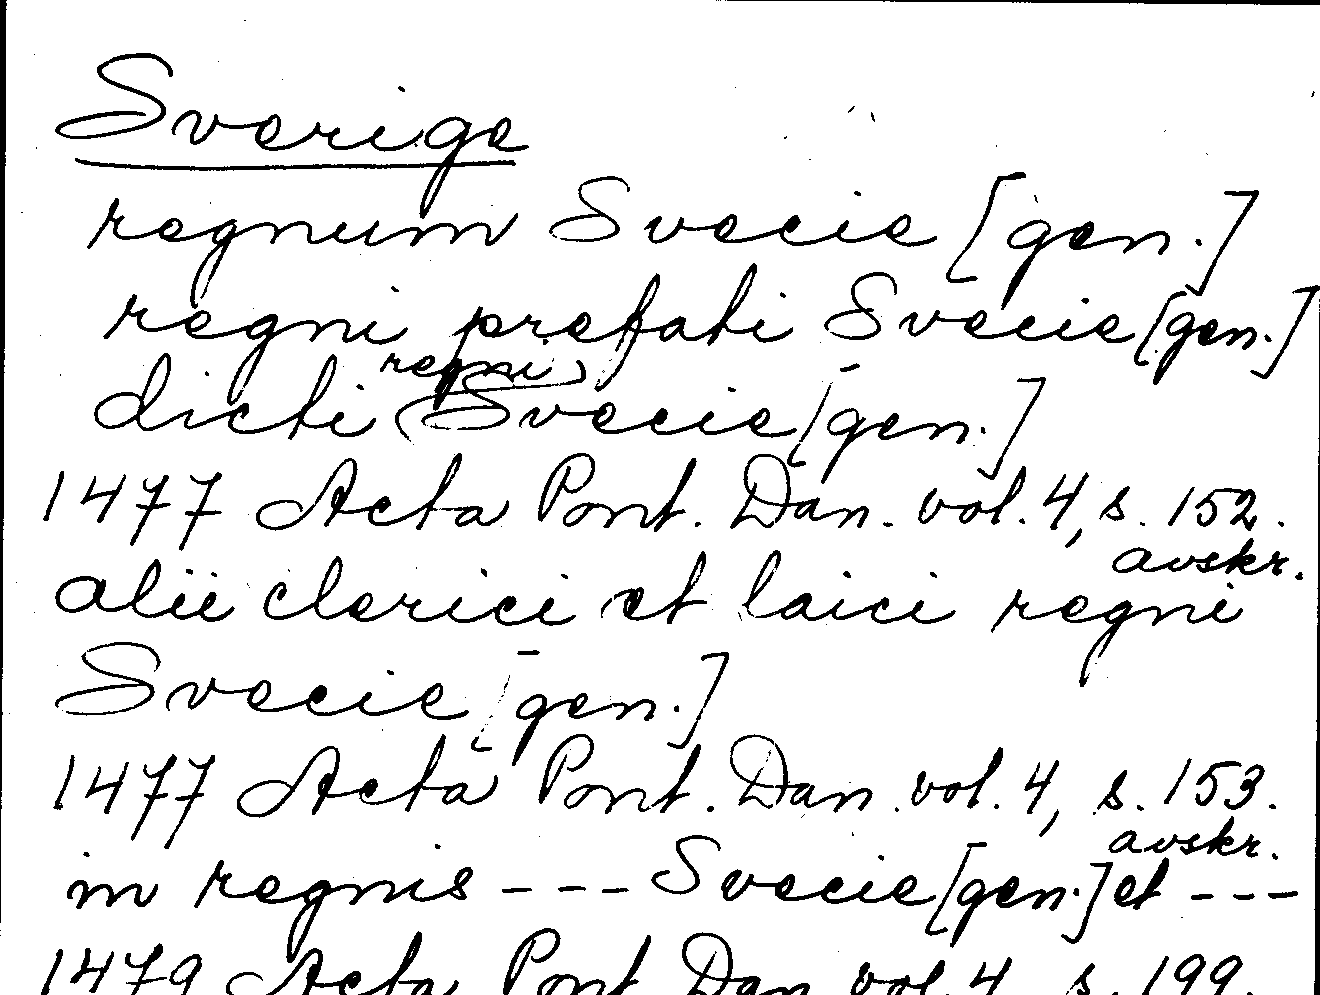 Sverige
regnum Svecie [gen.]
regni prefati Svecie [gen.]
dicti (regni) Svecie [gen.]
1477 Acta Pont. Dan. vol. 4, s. 152.
avskr.
alii clerici et laici regni
Svecie [gen.]
1477 Acta Pont. Dan. vol. 4, s. 153.
avskr.
in regnis --- Svecie [gen.] et ---
1479 Acta Pont Dan vol. 4 s. 199.